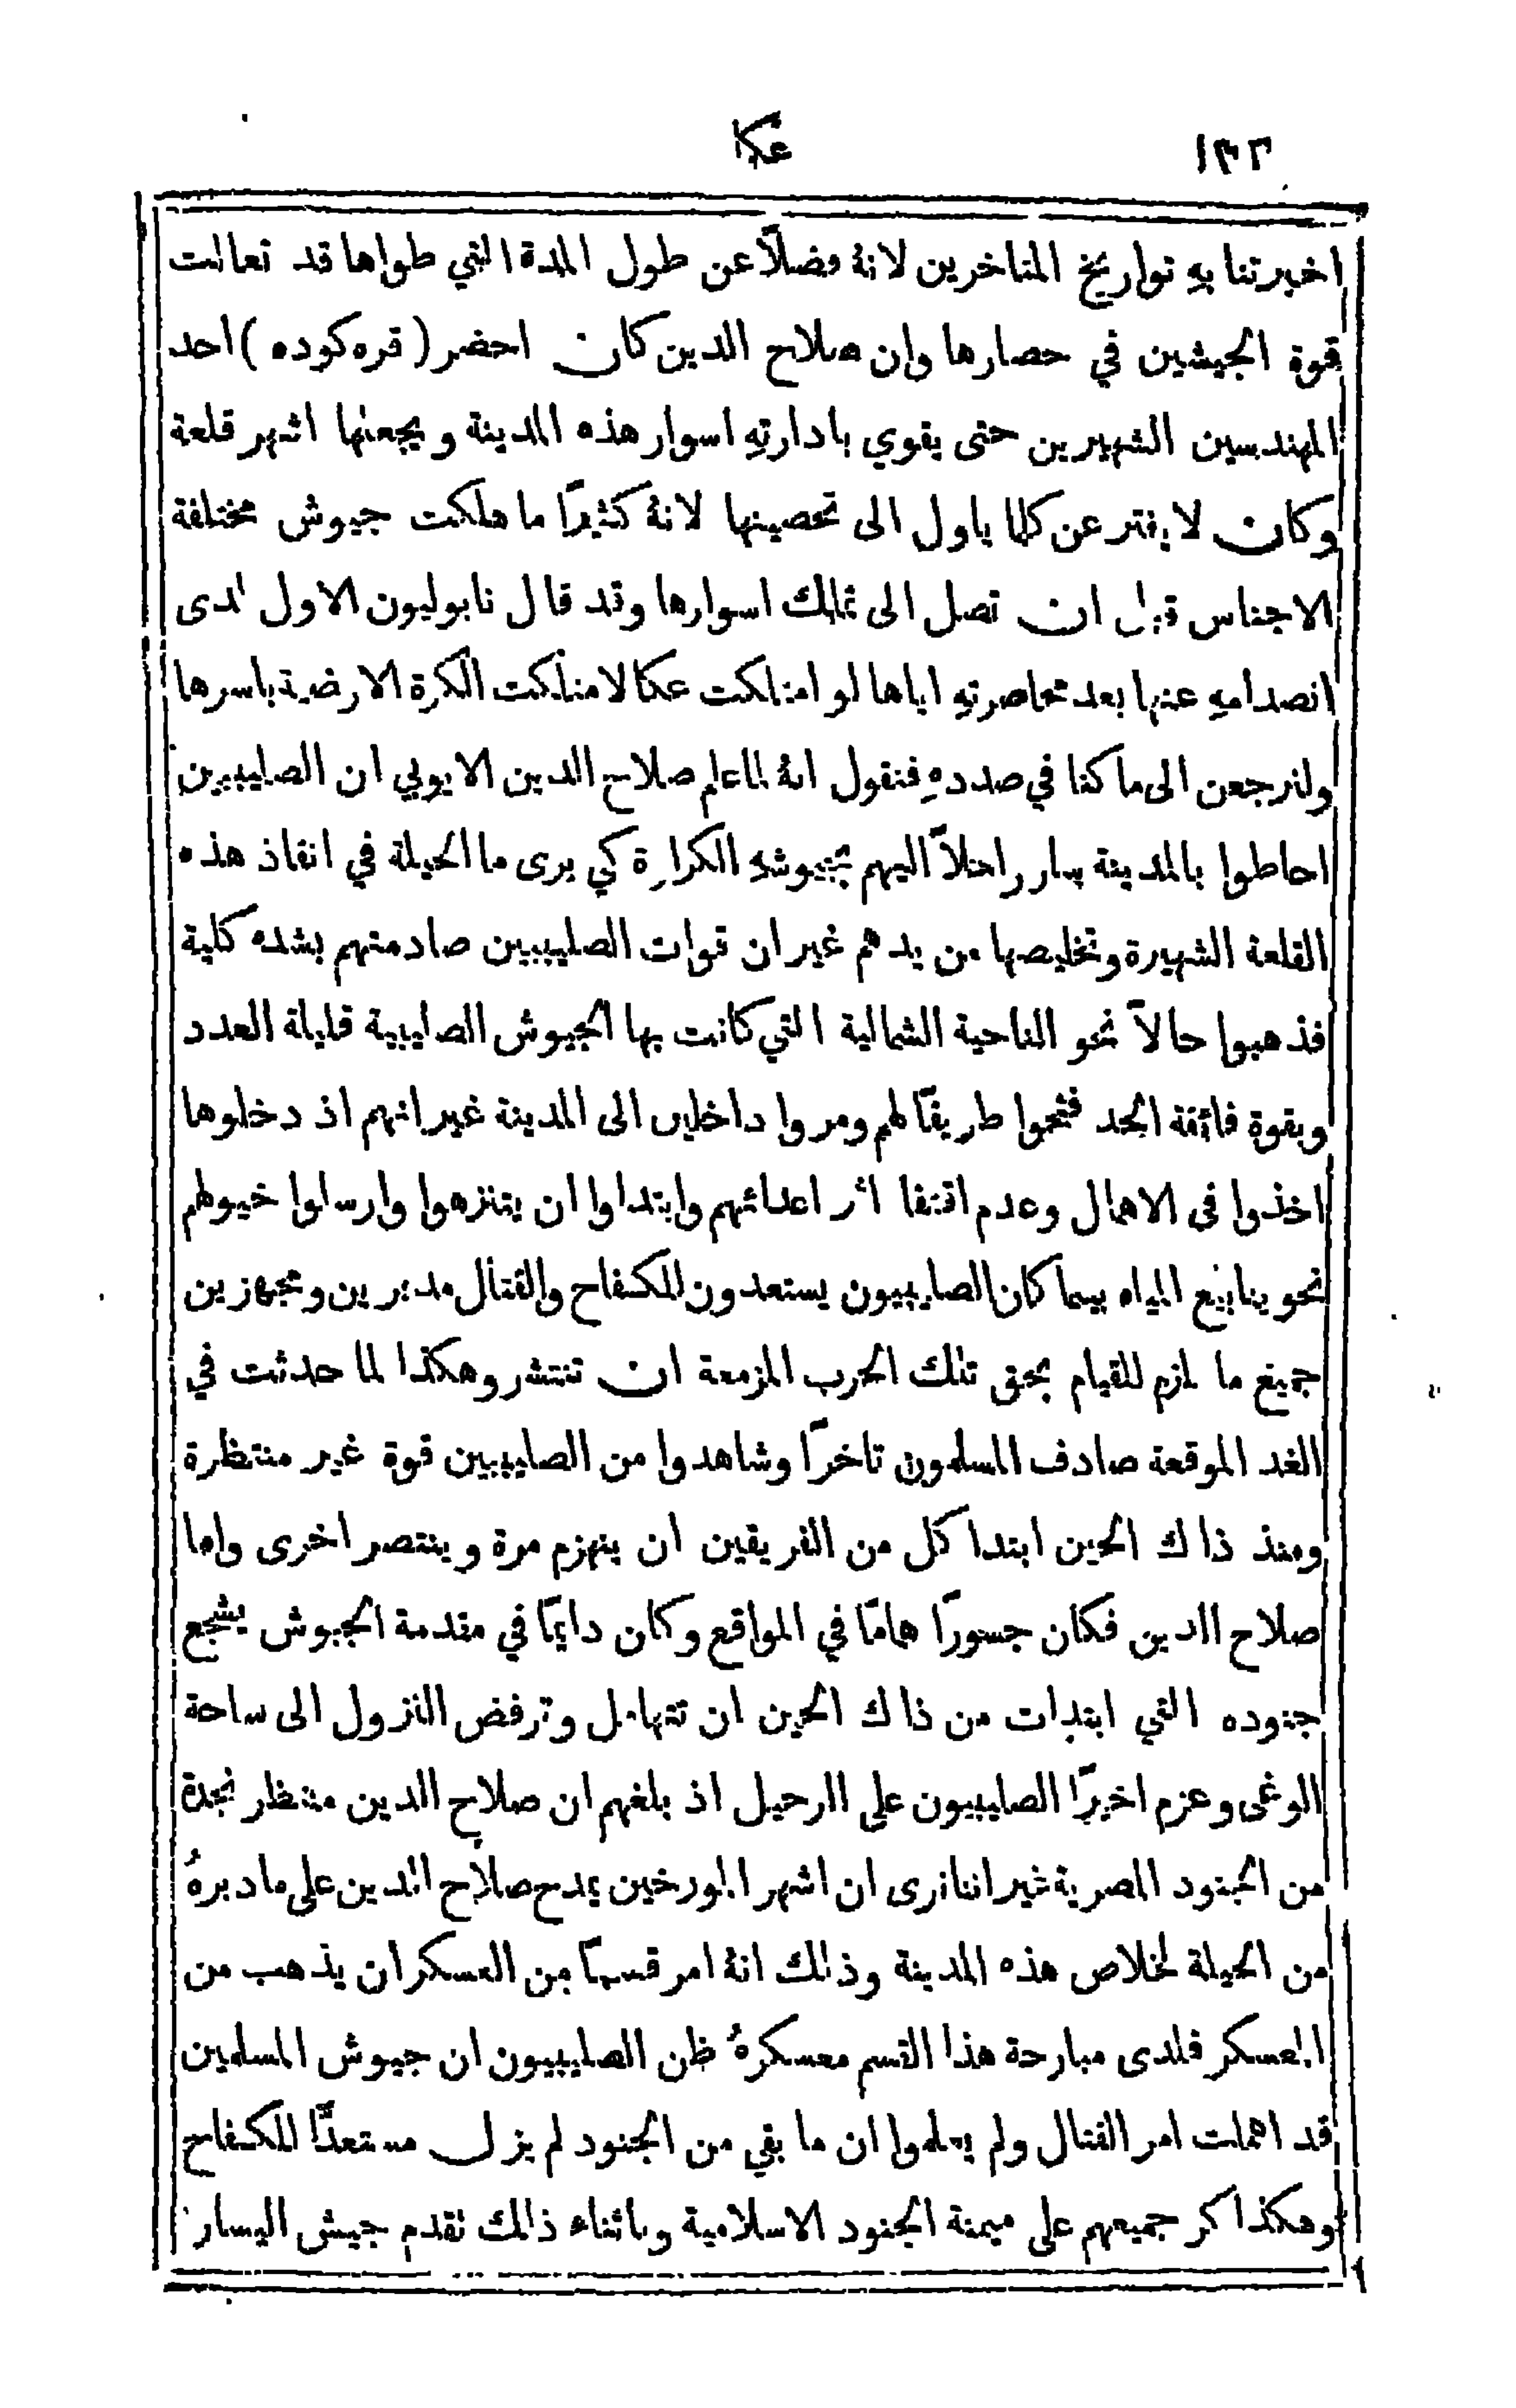 ١٣٢ عكا
اخبرتنا بهِ تواريخ المتاخرين لانهُ فضلاً عن طول المدة التي طواها قد تعالت
قوة الجيشين في حصارها وان صلاح الدين كان احضر ( قره كوده ) احد
المهندسين الشهيرين حتى يقوي بادارتهِ اسوار هذه المدينة ويجعلها اشهر قلعة
وكان لا يفتر عن كلما ياول الى تحصينها لانهُ كثيرًا ما هلكت جيوش مختلفة
الاجناس قبل ان تصل الى تملك اسوارها وقد قال نابوليون الاول لدى
انصدامهِ عنها بعد محاصرتهِ اياها لو امتلكت عكا لامتلكت الكرة الارضية باسرها
ولنرجعن الى ما كنا في صددهِ فنقول انهُ لما علم صلاح الدين الايوبي ان الصليبيين
احاطوا بالمدينة سار راحلاً اليهم بجيوشهِ الكرارة كي يرى ما الحيلة في انقاذ هذه
القلعة الشهيرة وتخليصها من يدهم غير ان قوات الصليبيين صادمتهم بشده كلية
فذهبوا حالاً نحو الناحية الشمالية التي كانت بها الجيوش الصليبية قليلة العدد
وبقوة فائقة الحد فتحوا طريقًا لهم ومروا داخلين الى المدينة غير انهم اذ دخلوها
اخذوا في الاهمال وعدم اقتفا اثر اعدائهم وابتداوا ان يتنزهوا وارسلوا خيولهم
نحو ينابيع المياه بينما كان الصليبيون يستعدون للكفاح والقتال مدبرين ومجهزين
جميع ما لزم للقيام بحق تلك الحرب المزمعة ان تنتشر وهكذا لما حدثت في
الغد الموقعة صادف المسلمون تاخرًا وشاهدوا من الصليبيين قوة غير منتظرة
ومنذ ذاك الحين ابتدا كل من الفريقين ان ينهزم مرة وينتصر اخرى واما
صلاح الدين فكان جسورًا هامًا في المواقع وكان دايمًا في مقدمة الجيوش يشجع
جنوده التي ابتدات من ذاك الحين ان تتهامل وترفض النزول الى ساحة
الوغى وعزم اخيرًا الصليبيون على الرحيل اذ بلغهم ان صلاح الدين منتظر نجدة
من الجنود المصرية غير اننا نرى ان اشهر المورخين يمدح صلاح الدين على ما دبرهُ
من الحيلة لخلاص هذه المدينة وذلك انهُ امر قسمًا من العسكر ان يذهب من
المعسكر فلدى مبارحة هذا القسم معسكرهُ ظن الصليبيون ان جيوش المسلمين
قد اهملت امر القتال ولم يعلموا ان ما بقي من الجنود لم يزل مستعدًّا للكفاح
وهكذا كر جميعهم على ميمنة الجنود الاسلامية وباثناء ذلك تقدم جيش اليسار